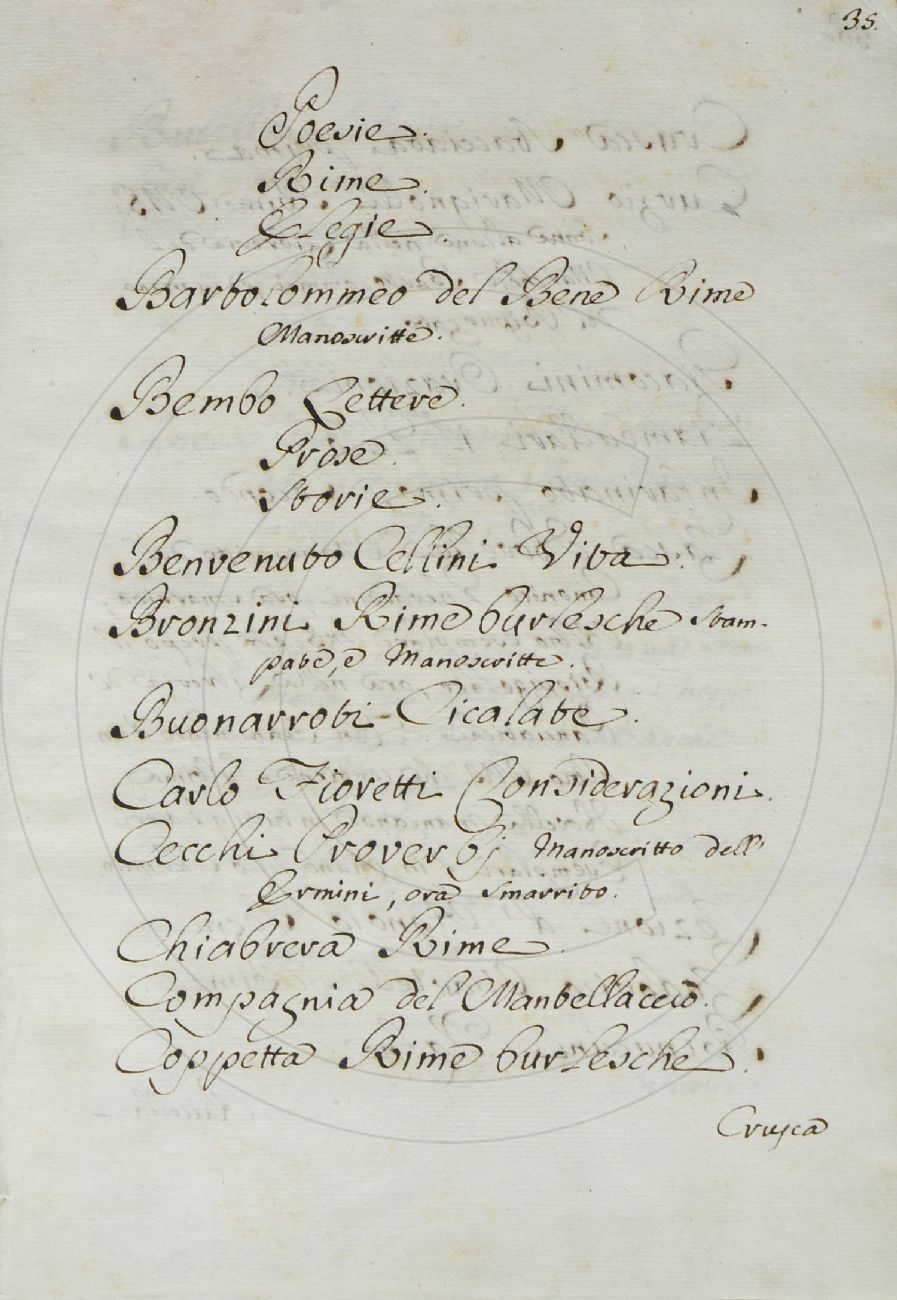 35.
Poesie.
Rime.
Elegie.
Bartolommeo del Bene Rime
Manoscritte.
Bembo Lettere.
Prose.
Storie.
Benvenuto Cellini Vita.
Bronzini Rime burlesche Stam-
pate, e Manoscritte.
Buonarroti Cicalate.
Carlo Fioretti Considerazioni.
Cecchi Proverbj Manoscritto dell'
Ermini, ora Smarrito.
Chiabrera Rime.
Compagnia del Mantellaccio.
Coppetta Rime burlesche.
Crusca